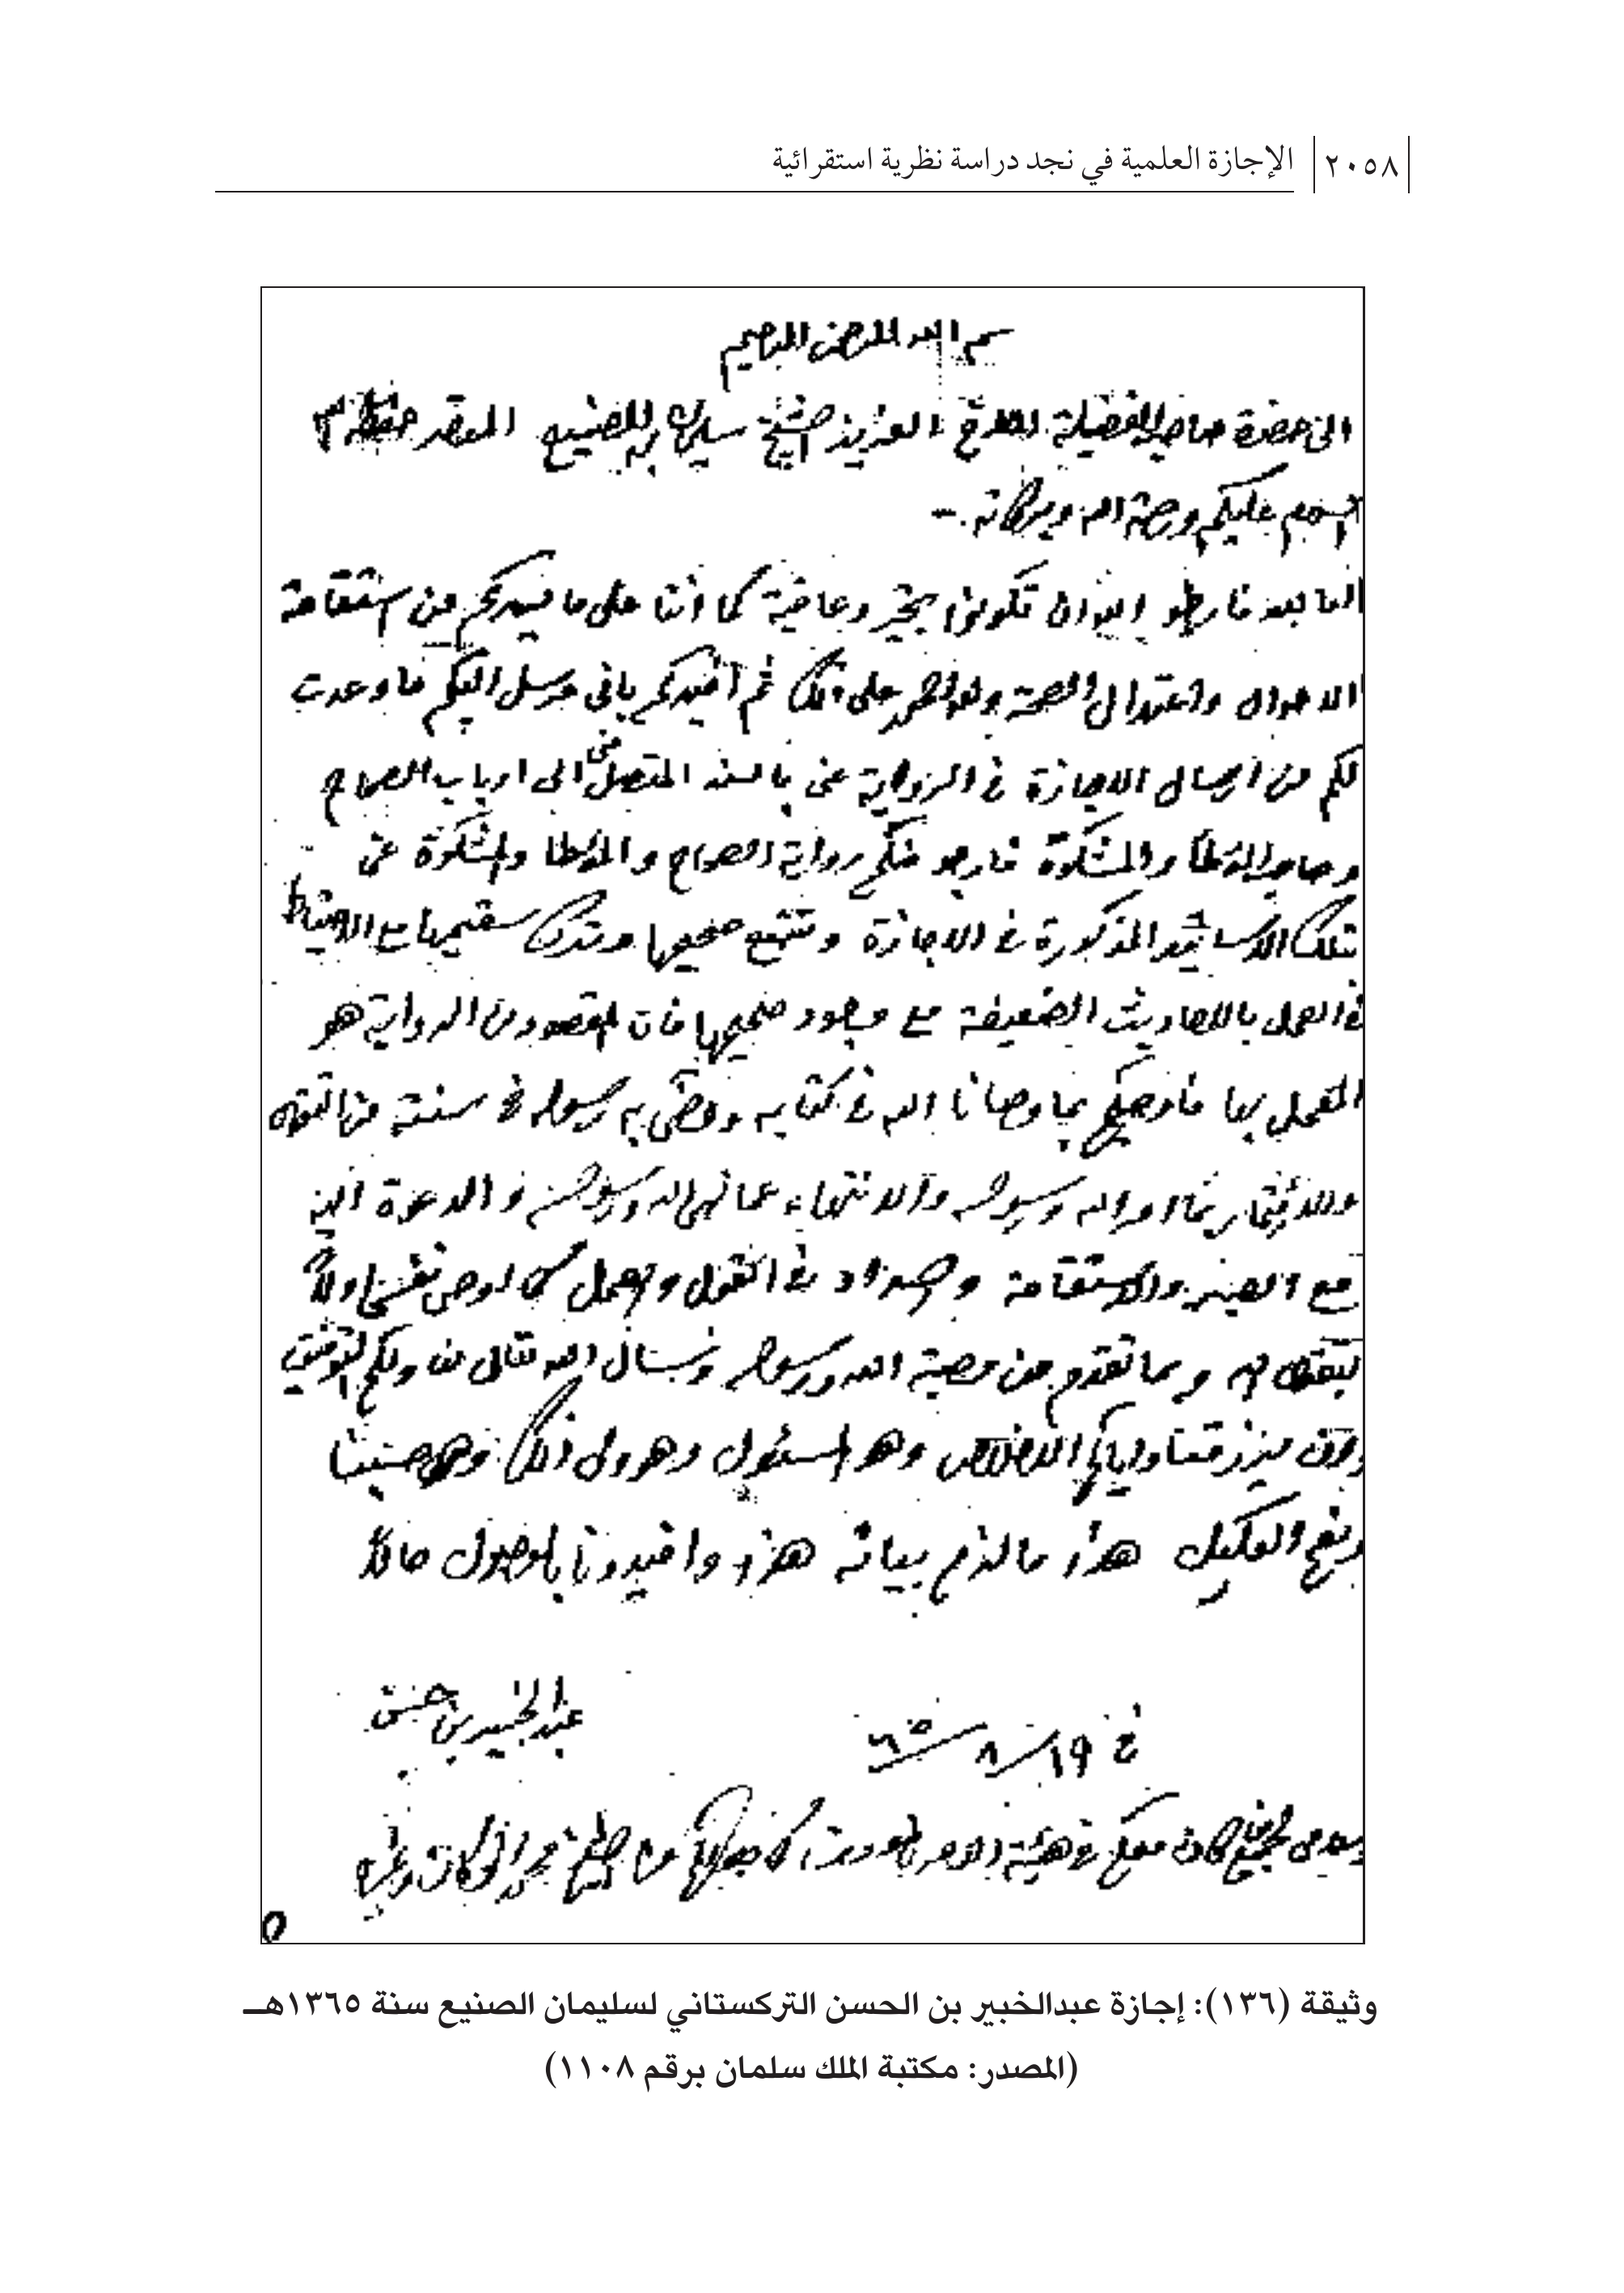 ٢٠٥٨ الإجازة العلمية في نجد دراسة نظرية استقرائية
بسم الله الرحمن الرحيم
الى حضرة صاحب الفضيلة العزيز الشيخ سليمان الصنيع الموقر حفظه
السلام عليكم ورحمة الله وبركاته -
اما بعد فارجو الله ان تكونوا بخير وعافية كما اننا على ما نفيدكم من استقامة
الاحوال واعتدال الصحة ولله الحمد على ذلك ثم افيدكم باني مرسل اليكم ما وعدت
لكم من ارسال الاجازة في الرواية عني بالسند المتصل مني الى ارباب الصحاح
وصاحب الموطأ والمشكوة فارجو منكم رواية الصحاح والموطا والمشكوة عني
بتلك الاسانيد المذكورة في الاجازة وتتبع صحيحها وترك سقيمها مع الاحتياط
في العمل بالاحاديث الضعيفة مع وجود صحيحها فان المقصود من الرواية هو
العمل بها فاوصيكم بما وصانا الله في كتابه ووصى به رسوله في سنته من التقوى
والائتمار بما امر الله ورسوله والانتهاء عما نهى الله ورسوله والدعوة اليه
مع الصبر والاستقامة والسداد في القول والعمل كما اوصي نفسي اولا
بتقوى الله وبما تقدم من وصية الله ورسوله ونسال الله تعالى لنا ولكم التوفيق
وان يرزقنا واياكم الاخلاص وهو المسئول وهو ولي ذلك وهو حسبنا
ونعم الوكيل هذا ما لزم بيانه هذا وافيدونا بالوصول حالا
عبد الخبير بن حسن
في ١٩/٨/٦٥
معكم في هيئة الامر بالمعروف
٥
وثيقة (١٣٦): إجازة عبدالخبير بن الحسن التركستاني لسليمان الصنيع سنة ١٣٦٥هـ
(المصدر: مكتبة الملك سلمان برقم ١١٠٨)